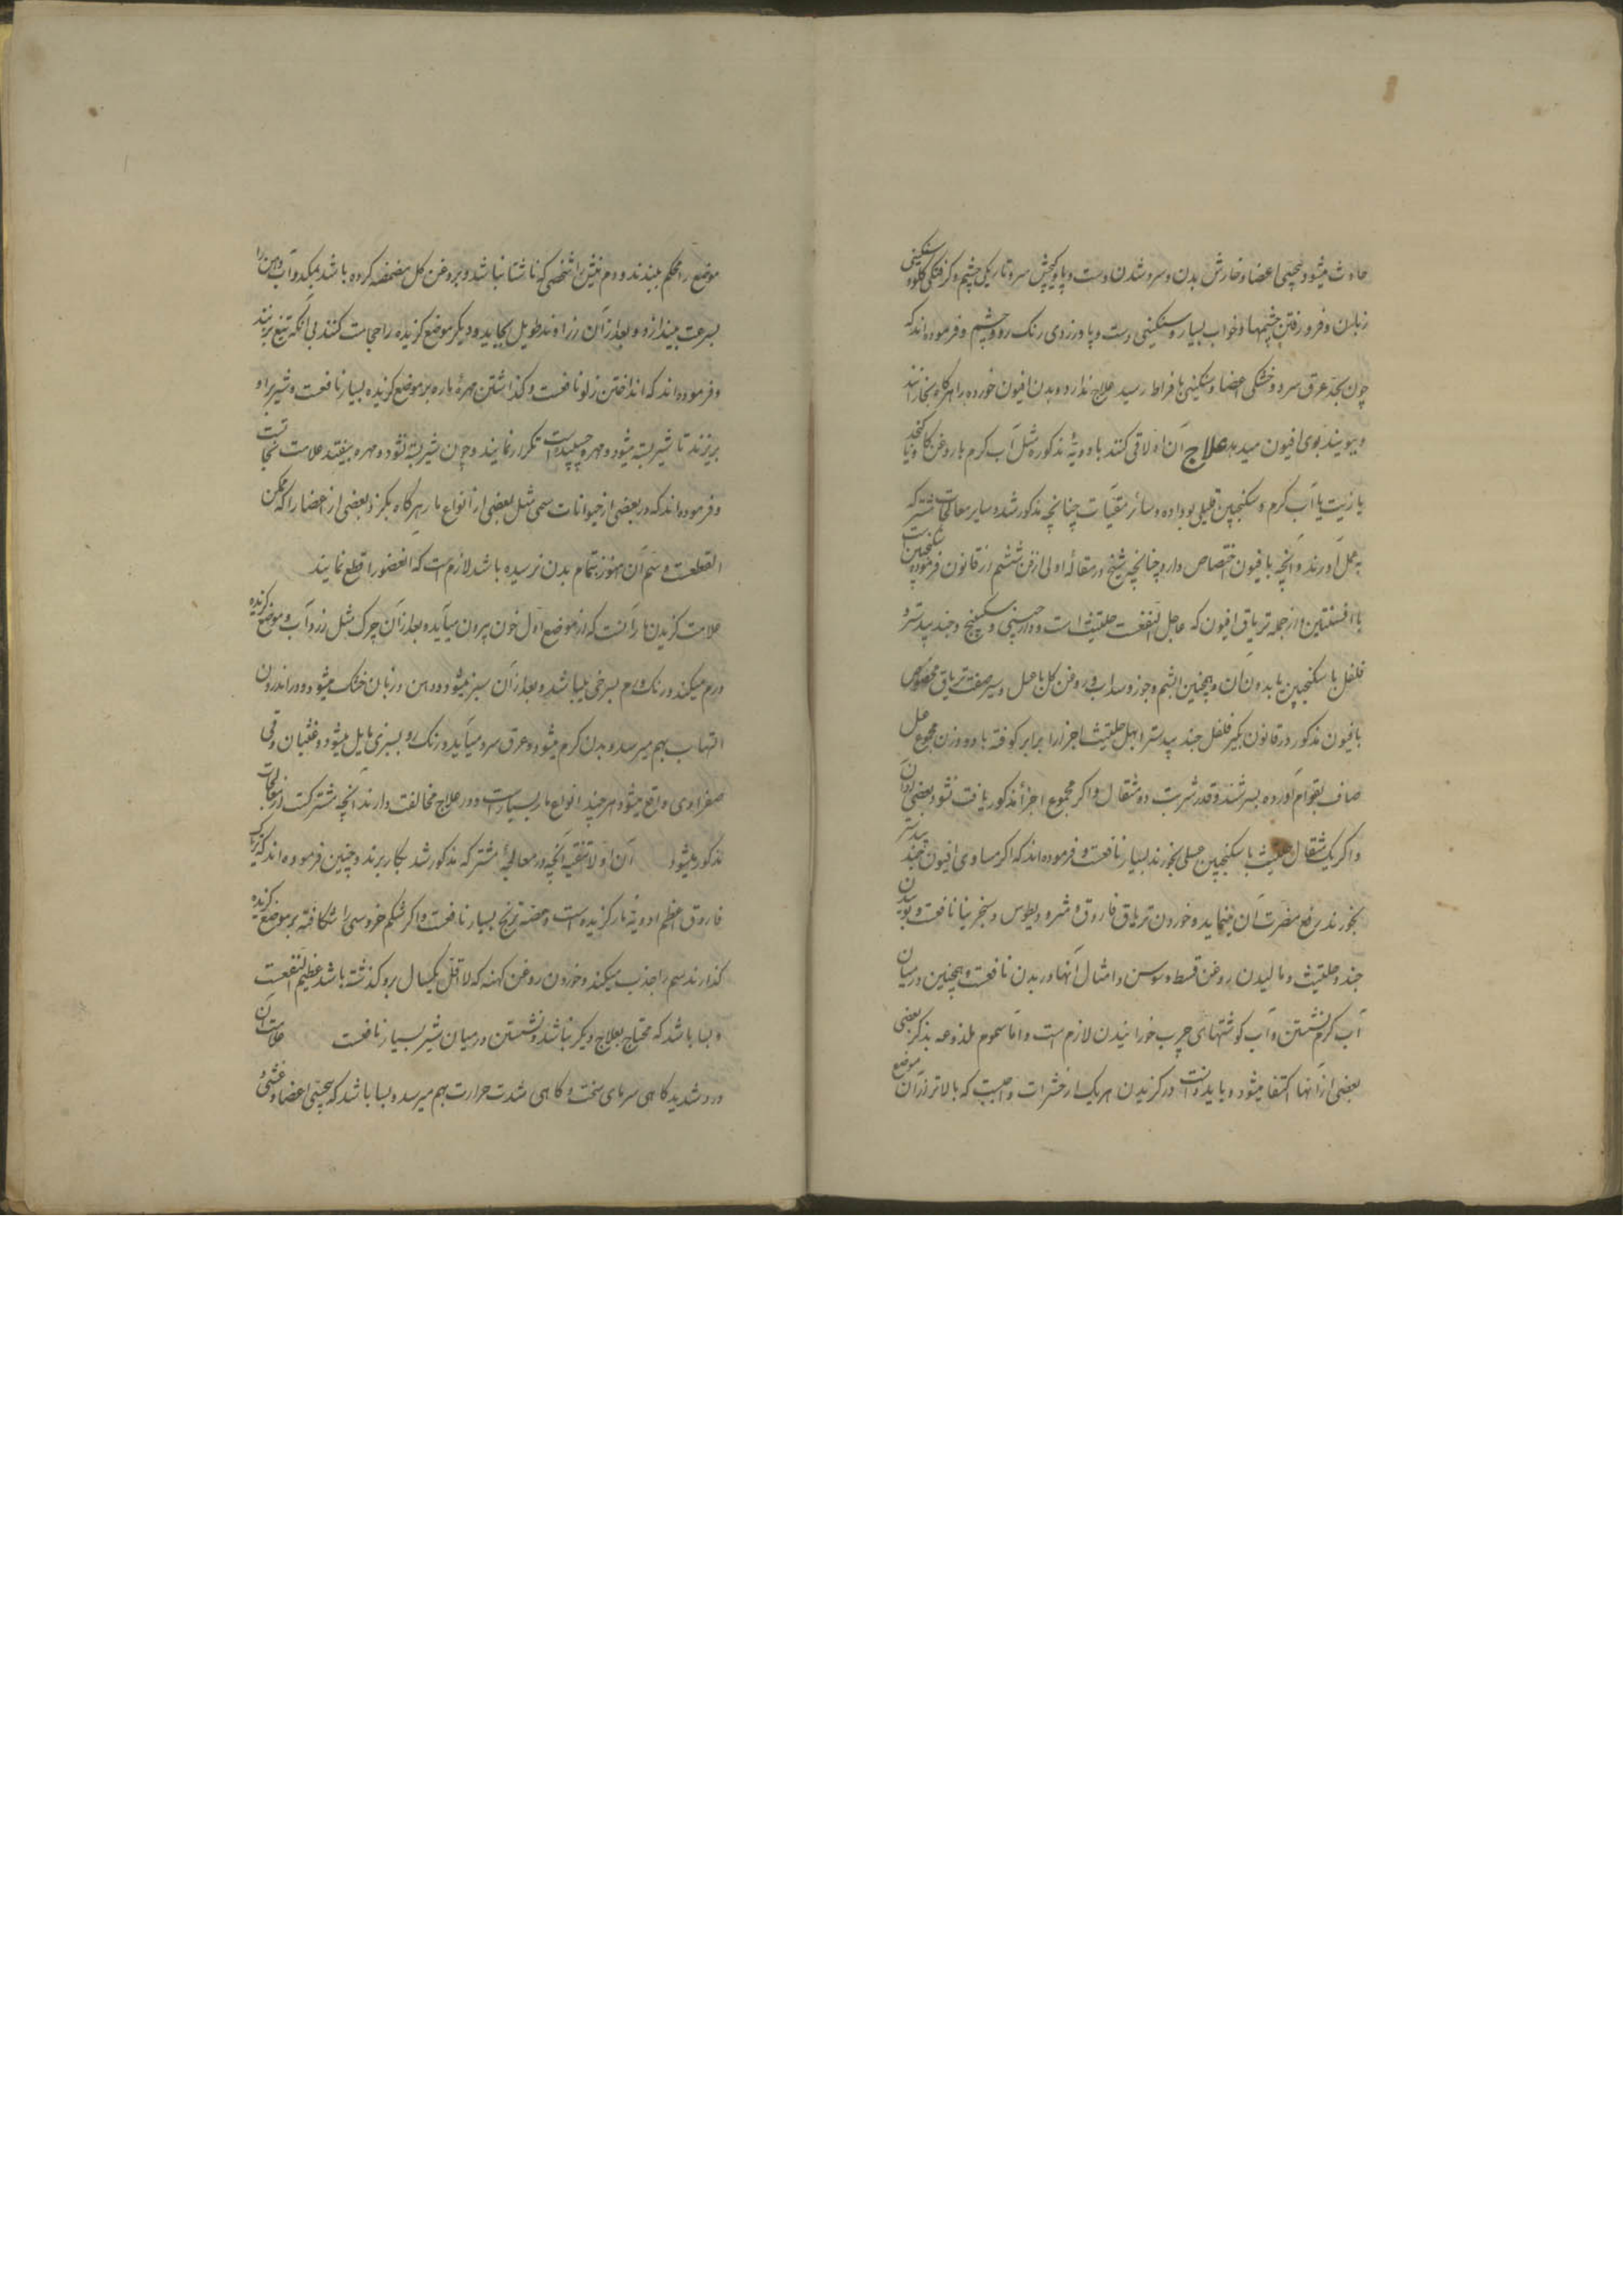 حادث میشود و بیحسی اعضا و خارش بدن و سرد شدن دست و پا و کچش سر و تاریکی چشم و گرفتگی گلو و سنگینی
زبان و فرو رفتن چشمها و خواب بسیار و سنگینی دست و پا و زردی رنک رو و چشم و فرموده اند که
چون بحد عرق سرد و خشکی اعضا و سنگینی بافراط رسید علاج ندارد و بدن افیون خورده را هر گاه بخارانند
و ببویند بوی افیون میدهد علاج آن اولا قی کنند بادویهٔ مذکوره مثل آب کرم با روغن کاو یا کنجد
یا زیت یا آب کرم و سکنجبین قلیلی بوداده و سائر مقیّات چنانچه مذکور شد و سایر معالجات مشترکه
به عمل آورند و آنچه بافیون اختصاص دارد چنانچه شیخ در مقالهٔ اولی از فن ششم از قانون فرموده سکنجبین است
با افسنتین و از جمله تریاق افیون که عاجل النفعست حلتیث است و دارچینی و سکبینج و جند بیدستر و
فلفل با سکنجبین یا بدون آن و همچنین ابشم و جوز و سداب و روغن کل با عسل و سیر صفت تریاق مخصوص
بافیون مذکور در قانون بکیر فلفل جند بیدستر ابهل حلتیث اجزا را برابر کوفته با دو وزن مجموع عسل
صاف بقوام آورده بسرشند و قدر شربت دو مثقال و اکر مجموع اجزأ مذکور یافت نشود بعضی از آن
و اکر یک مثقال حلتیث با سکنجبین عسلی بخورند بسیار نافعست و فرموده اند که اکر مساوی افیون جند بیدستر
بخورند رفع مضرت آن مینماید و خوردن تریاق فاروق و مثرودیطوس و سنجرینا نافعست و بوئیدن
جند و حلتیث و مالیدن روغن قسط و سوسن و امثال آنها در بدن نافعست و همچنین در میان
آب کرم نشستن و آب کوشتهای چرب خورانیدن لازم است و اما سموم ملذوعه بذکر بعضی
بعضی از آنها اکتفا میشود و باید دانست در کزیدن هر یک از حشرات واجبست که بالاتر از آن موضع
موضع را محکم ببندند و دم نیش را شخصی که ناشتا نباشد و بروغن کل مضمضه کرده باشد بمکد و آب دهن را
بسرعت بیندازد و بعد از آن زراوند طویل بخاید و دیکر موضع کزیده را حجامت کنند بی آنکه تیغ بزنند
و فرموده اند که انداختن زلو نافعست و کذاشتن مهرهٔ مار بر موضع کزیده بسیار نافعست و شیر بر او
بریزند تا شیر بسته میشود و مهره چسپیده است تکرار نمایند و چون شیر بسته نشود و مهره بیفتد علامت نجاتست
و فرموده اند که در بعضی از حیوانات سمی مثل بعضی از انواع مار هر کاه بکزد بعضی از اعضا را که ممکن
القطعست و سم آن هنوز بتمام بدن نرسیده باشد لازم است که آنعضو را قطع نمایند
علامت کزیدن مار آنست که از موضع اول خون بیرون میآید و بعد از آن چرک مثل زردآب و موضع کزیده
ورم میکند و رنک ورم بسرخی میباشد و بعد از آن سبز میشود و دهن و زبان خشک میشود و در اندرون
التهاب بهم میرسد و بدن کرم میشود و عرق سرد میآید و رنک رو بسبزی مایل میشود و غثیان و قی
صفراوی واقع میشود هر چند انواع مار بسیار است و در علاج مخالفت دارند آنچه مشترکست از معالجات
مذکور میشود آن اولا تنقیه آنچه در معالجهٔ مشترکه مذکور شد بکار برند و چنین فرموده اند که تریاق
فاروق اعظم ادویهٔ مار کزیده است و حمضه ترنج بسیار نافعست و اکر شکم خروسی را شکافته بر موضع کزیده
کذارند سم را جذب میکند و خوردن روغن کهنه که لااقل یکسال برو کذشته باشد عظیم النفعست
و بسا باشد که محتاج بعلاج دیکر نباشد و نشستن در میان شیر بسیار نافعست علامت آن
درد شدید کاهی سرمای سخت و کاهی شدت حرارت بهم میرسد و بسا باشد که بیحسی اعضا و غشی و